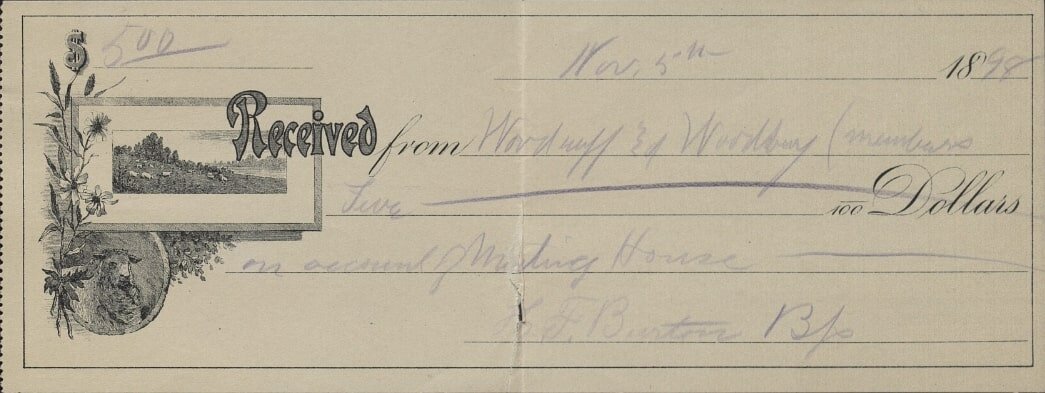 $ 5.00
Nov. 5th 1898
Received from Woodruff & Woodbury (members
Five 100 Dollars
on account of Meeting House
H. F. Burton Bp